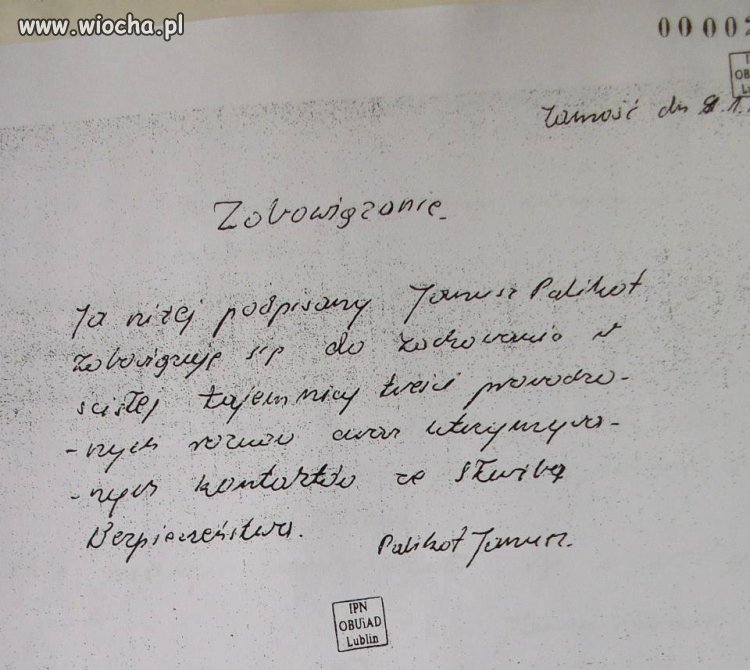 www.wiocha.pl
0000
OB
Zamość dn
Zobowiązanie.
Ja niżej podpisany Janusz Palikot
zobowiązuję się do zachowania w
ścisłej tajemnicy treści prowadzo-
-nych rozmów oraz utrzymywa-
-nych kontaktów ze Służbą
Bezpieczeństwa.
Palikot Janusz.
IPN
OBUiAD
Lublin